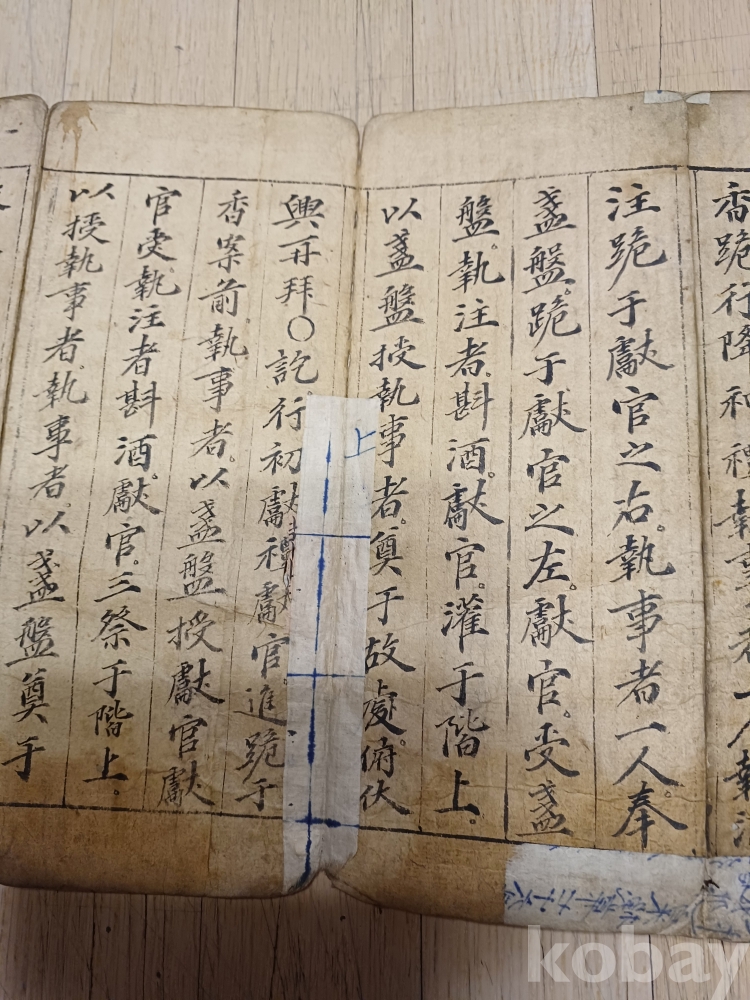 香跪行降神禮執事者一人執注
注跪于獻官之右。執事者一人。奉
盞盤。跪于獻官之左。獻官。受盞
盤。執注者。斟酒。獻官。灌于階上。
以盞盤授執事者。奠于故處。俯伏
興再拜○訖。行初獻禮獻官。進跪于
香案前。執事者。以盞盤授獻官獻
官受。執注者斟酒。獻官。三祭于階上。
以授執事者。執事者。以盞盤奠于
上
kobay